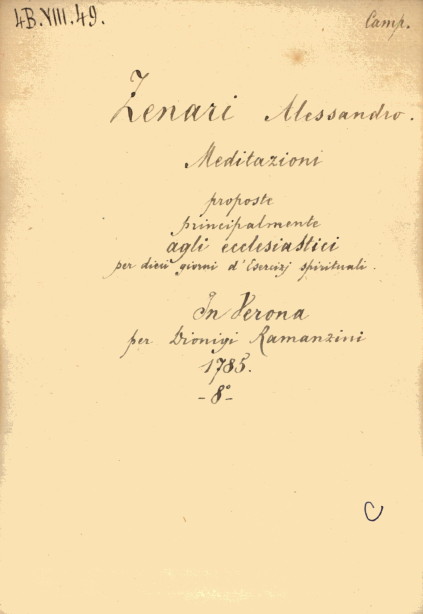 4B.XIII.49.
Camp.
Zenari Alessandro.
Meditazioni
proposte
principalmente
agli ecclesiastici
per dieci giorni d'Esercizj spirituali.
In Verona
per Dionigi Ramanzini
1785.
-8°-
C